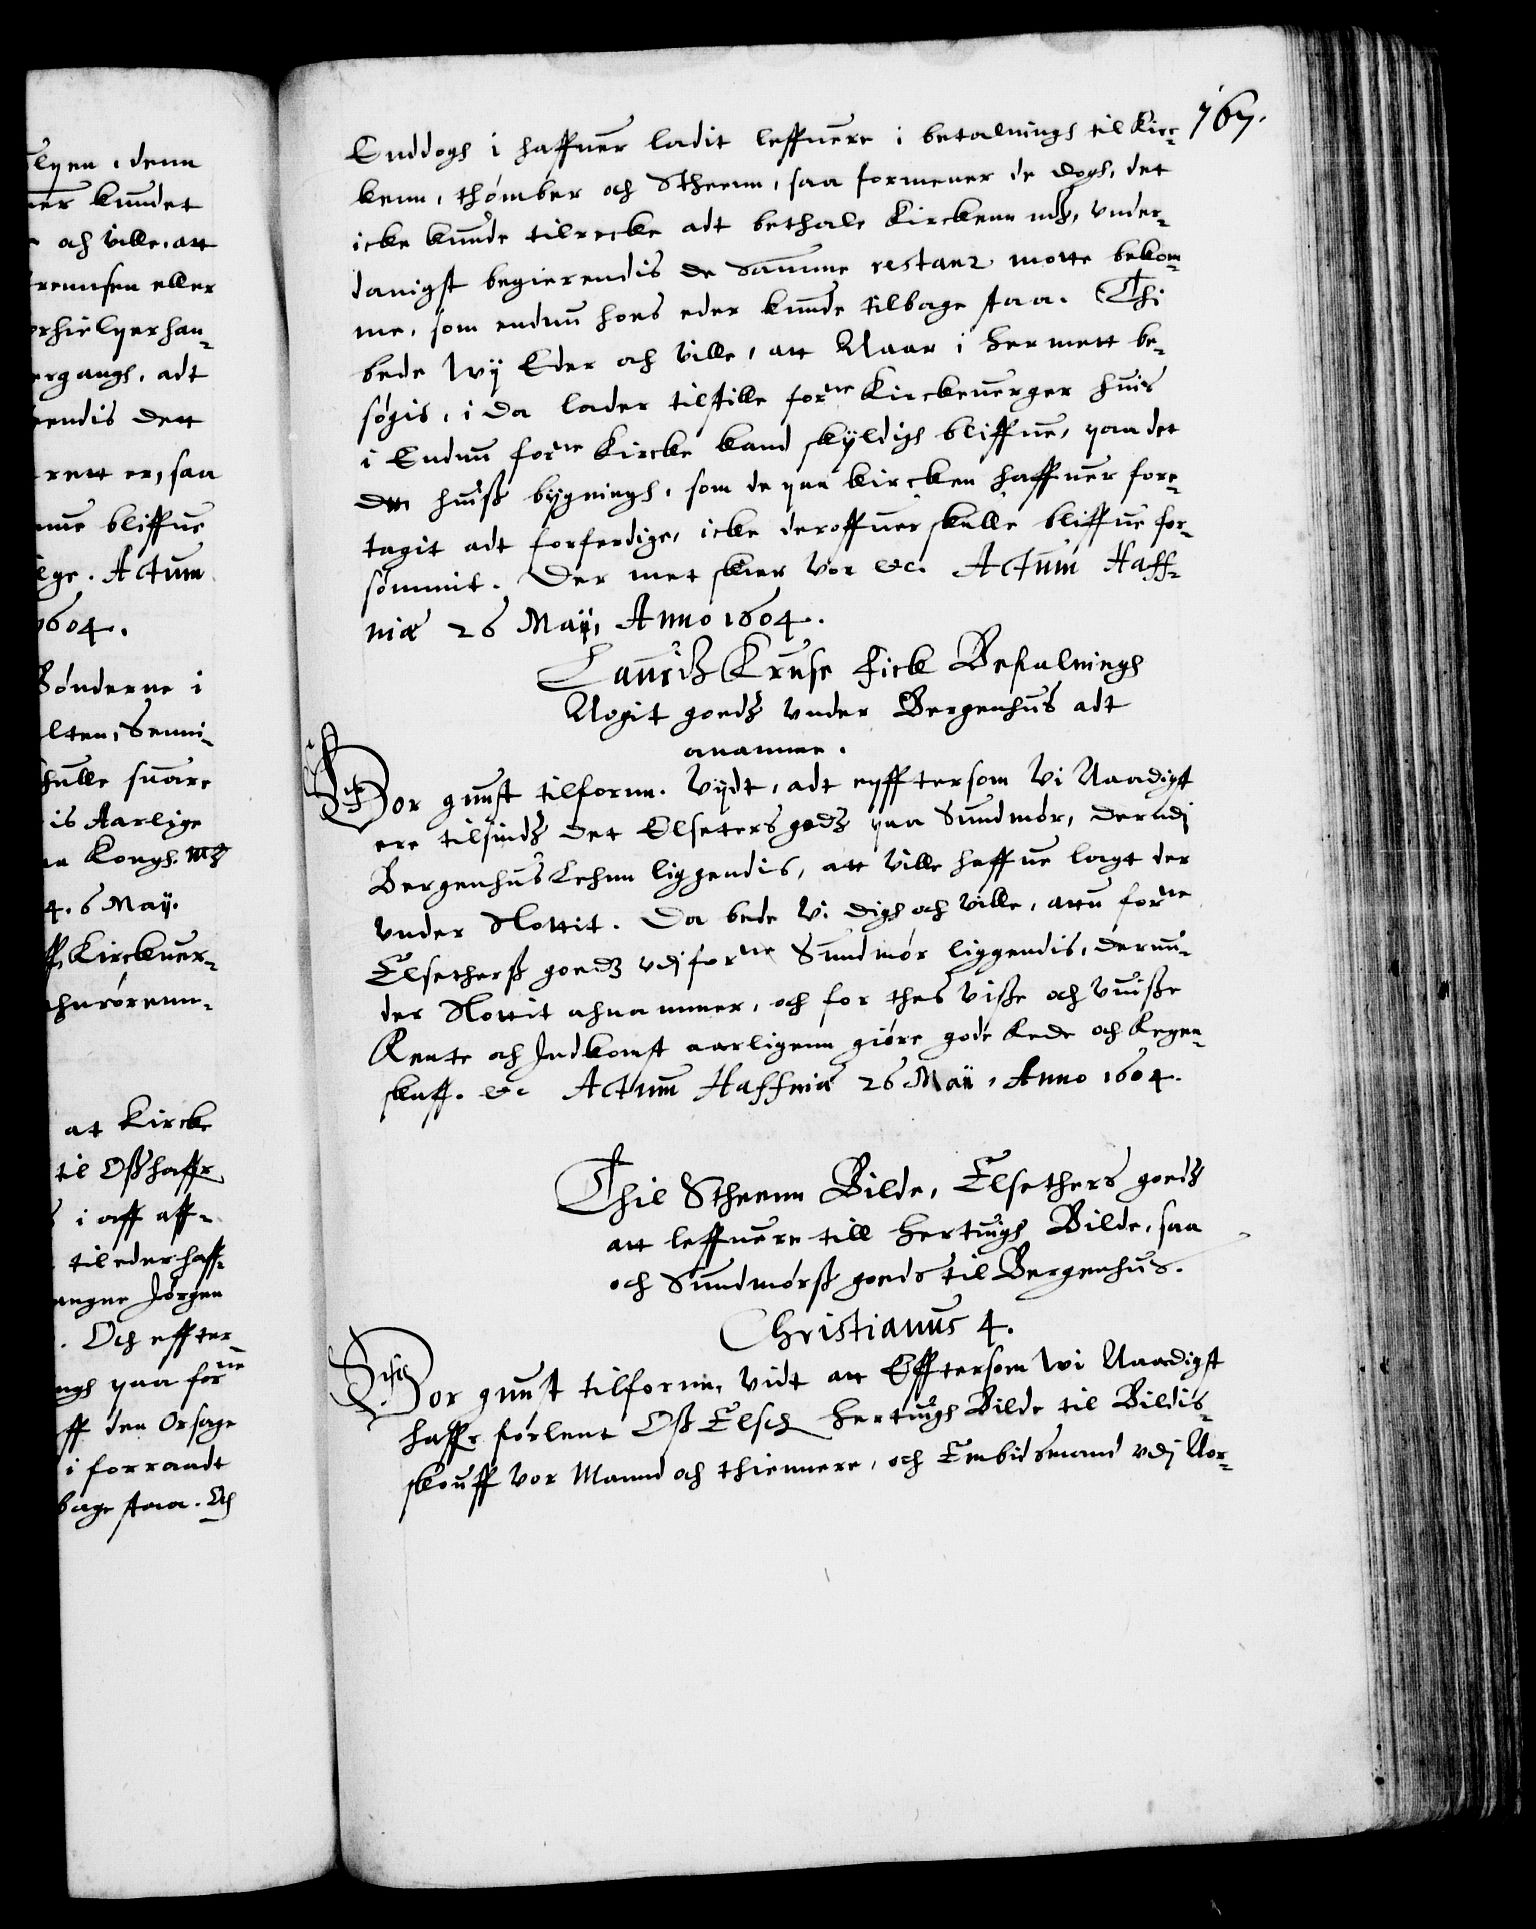 lyen, denn
ner kundet
och ville, att
remsen eller
orhielperhan-
ergangh, adt
endis dett
rett er, saa
nne bliffue
lge. Actum
1604.
Bønderne i
lten, Senni-
hulle suare
is Aarlige
Kongh. Mtz
4. 6 Maij.
Kirckuer-
at Kircke
til Oss haffr
i aff aff-
til eder haff-
angne Jørgen
. Och effter
ngh paa forne
ff den Orsage
i forraadt
bage staa. Och
767.
Enddogh i haffuer ladit leffuere i betalningh til Kirc-
kenn, thømber och Stheenn, saa formener de dogh, det
icke kunde tilrecke adt bethale Kirckenn mz, vnder-
danigst begierendis de Samme restanz motte bekom-
me, som endnu hoes eder kunde tilbage staa. Thi
bede Wij Eder och ville, att Naar i her mett be-
søgis, i da lader tilstille forne Kirckeuerger huis
i Endnu forne Kircke kand skyldigh bliffue, paa det
den huiss bygningh, som de paa kircken haffuer fore-
tagit adt forferdige, icke deroffuer skulle bliffue for-
sømmit. Der met skier vor etc. Actum Haff-
niæ 26 Maij, Anno 1604.
Lauritz Kruse fick Befalningh
Nogit goedz vnder Bergenhus adt
anamme.
C4 Vor gunst tilfornn. Vijdt, adt epfftersom Vi Naadigst
ere tilsindz det Elseters godz paa Sundmør, der udj
Bergenhus Lehnn liggendis, att ville haffue lagt der
vnder Slottit. Da bede Vi digh och ville, attu forne
Elsetherss goedz vdj forne Sundmør liggendis, derun-
der Slottit ahnammer, och for thes visse och vuisse
Rente och Indkomst aarligenn giøre gode Rede och Regen-
skaff. etc Actum Haffniæ 26 Maij, Anno 1604.
Thil Stheenn Bilde, Elsethers goedz
att leffuere till Hertuigh Bilde, saa
och Sundmørss goeds til Bergenhus.
Christianus 4.
Vor gunst tilfornn, vidt att Efftersom Wi Naadigst
haffr forlent Oss Elsch Hertuigh Bilde til Bildis-
skouff vor Mannd och thiennere, och Embidsmand vdj Nor-